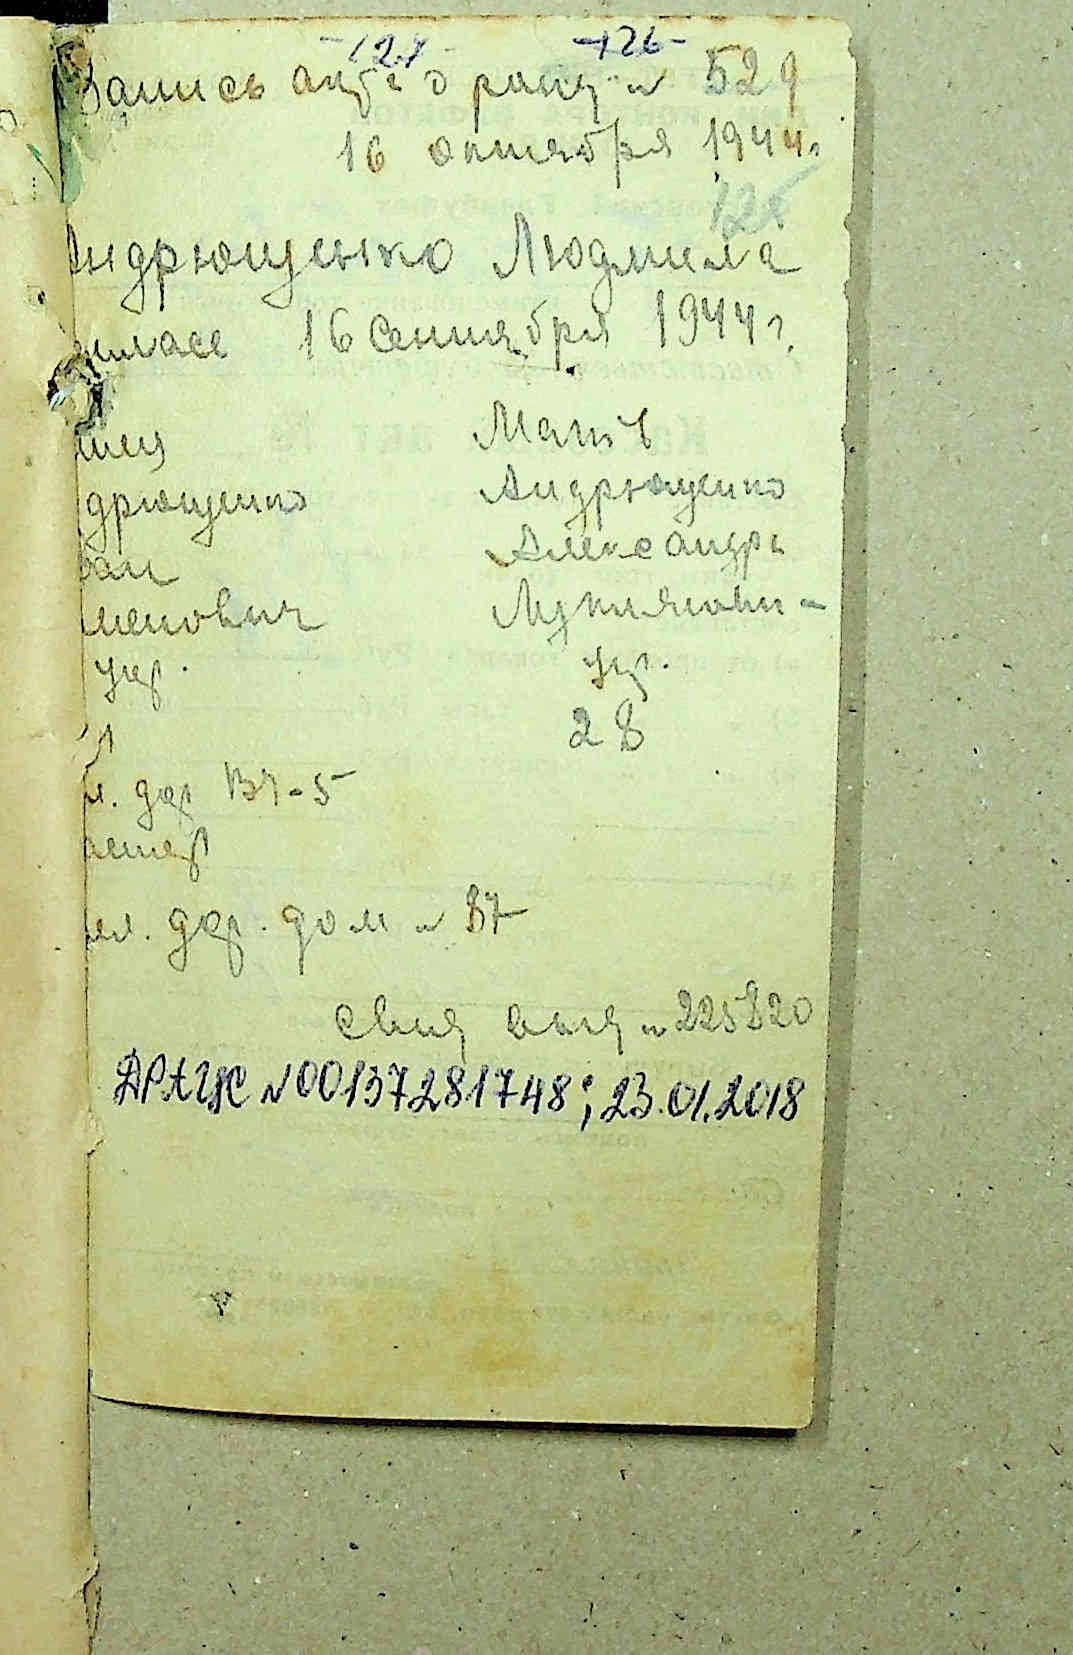 -126-
Запись акта о рожд № 529
16 октября 1944 г
125
Андрющенко Людмила
16 Сентября 1944 г.
Мать
дрющенко Андрющенко
Александра
менович Лукинична
укр. укр.
28
дор ВЧ-5
дор. дом № 87
свид выд № 225820
ДРАЦС №00137281748; 23.01.2018